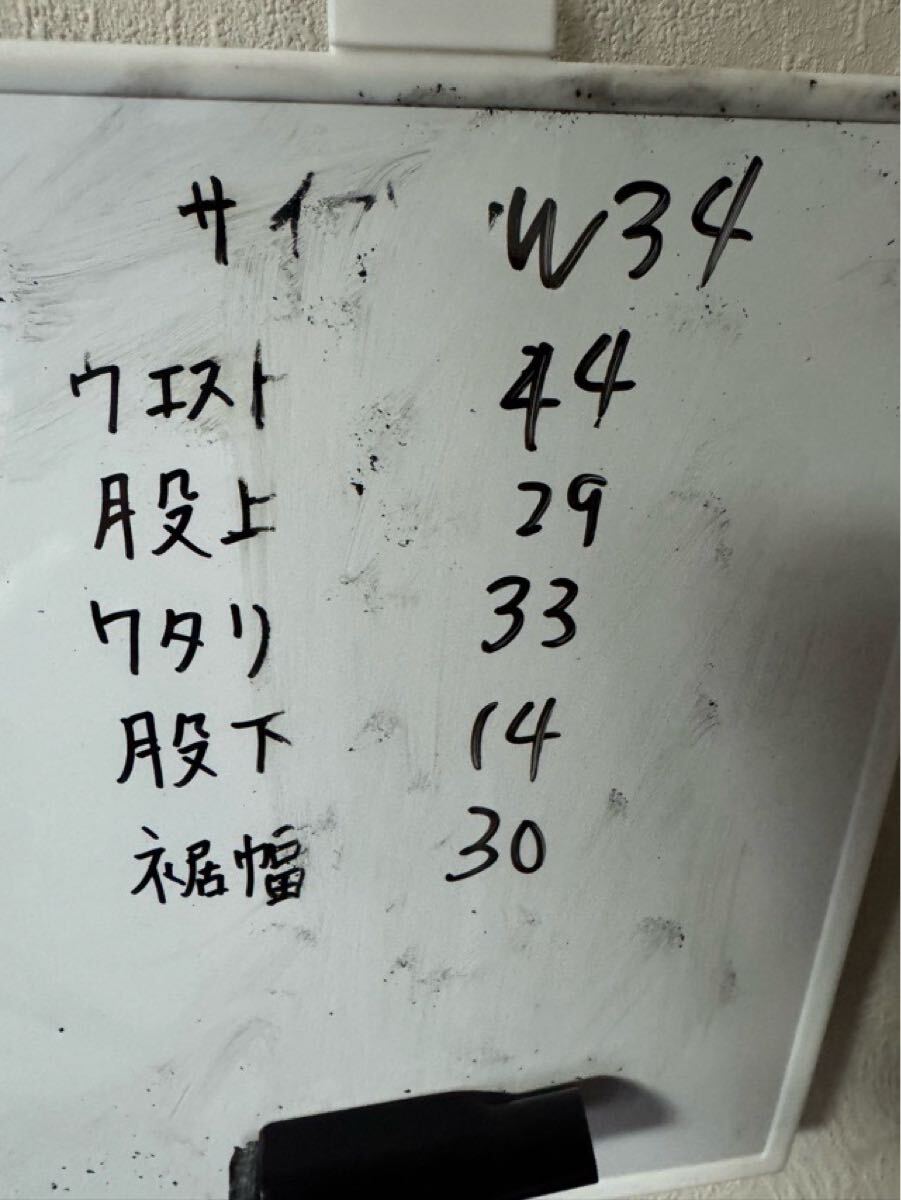 サイズ W34
ウエスト 44
股上 29
ワタリ 33
股下 14
裾幅 30